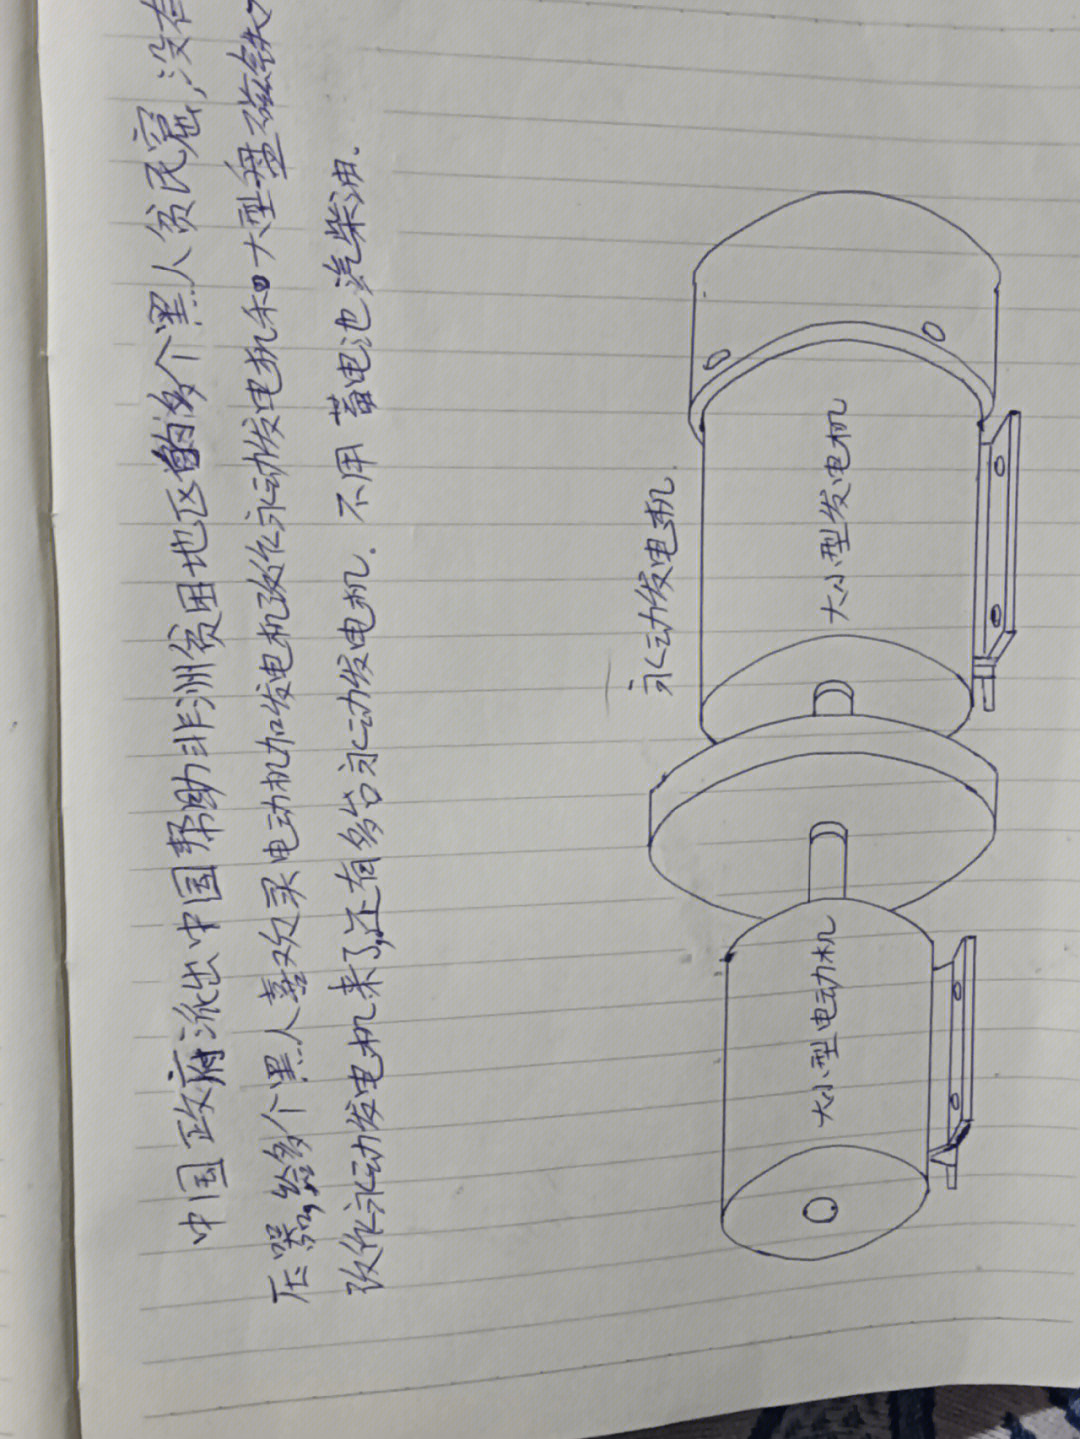 中国政府派出中国帮助非洲贫困地区的多个黑人贫民窟,没有
压器,给多个黑人喜欢买电动机加发电机改作永动发电机和大型盘磁铁
改作永动发电机来了,还有多台永动发电机.不用蓄电池汽柴油.
永动发电机.
大小型发电机
大小型电动机